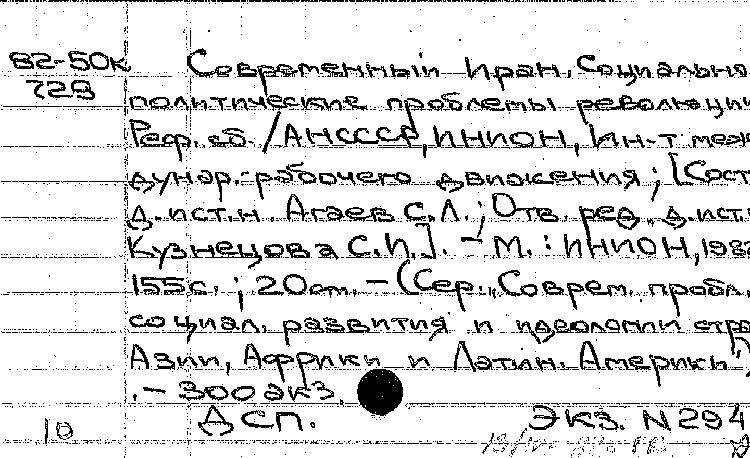 82-50к Современный Иран. Социально-
729 политические проблемы революции:
Реф. сб. / АН СССР, ИНИОН, Ин-т меж-
дунар. рабочего движения; [Сост.
д.ист.н. Агаев С.Л.; Отв. ред. д.ист.
Кузнецова С.И.]. - М.: ИНИОН, 1982
155с.; 20см. - (Сер. "Соврем. пробл.
социал. развития и идеологии стра
Азии, Африки и Латин. Америки")
. - 300 экз.
ДСП. Экз. N 294
10